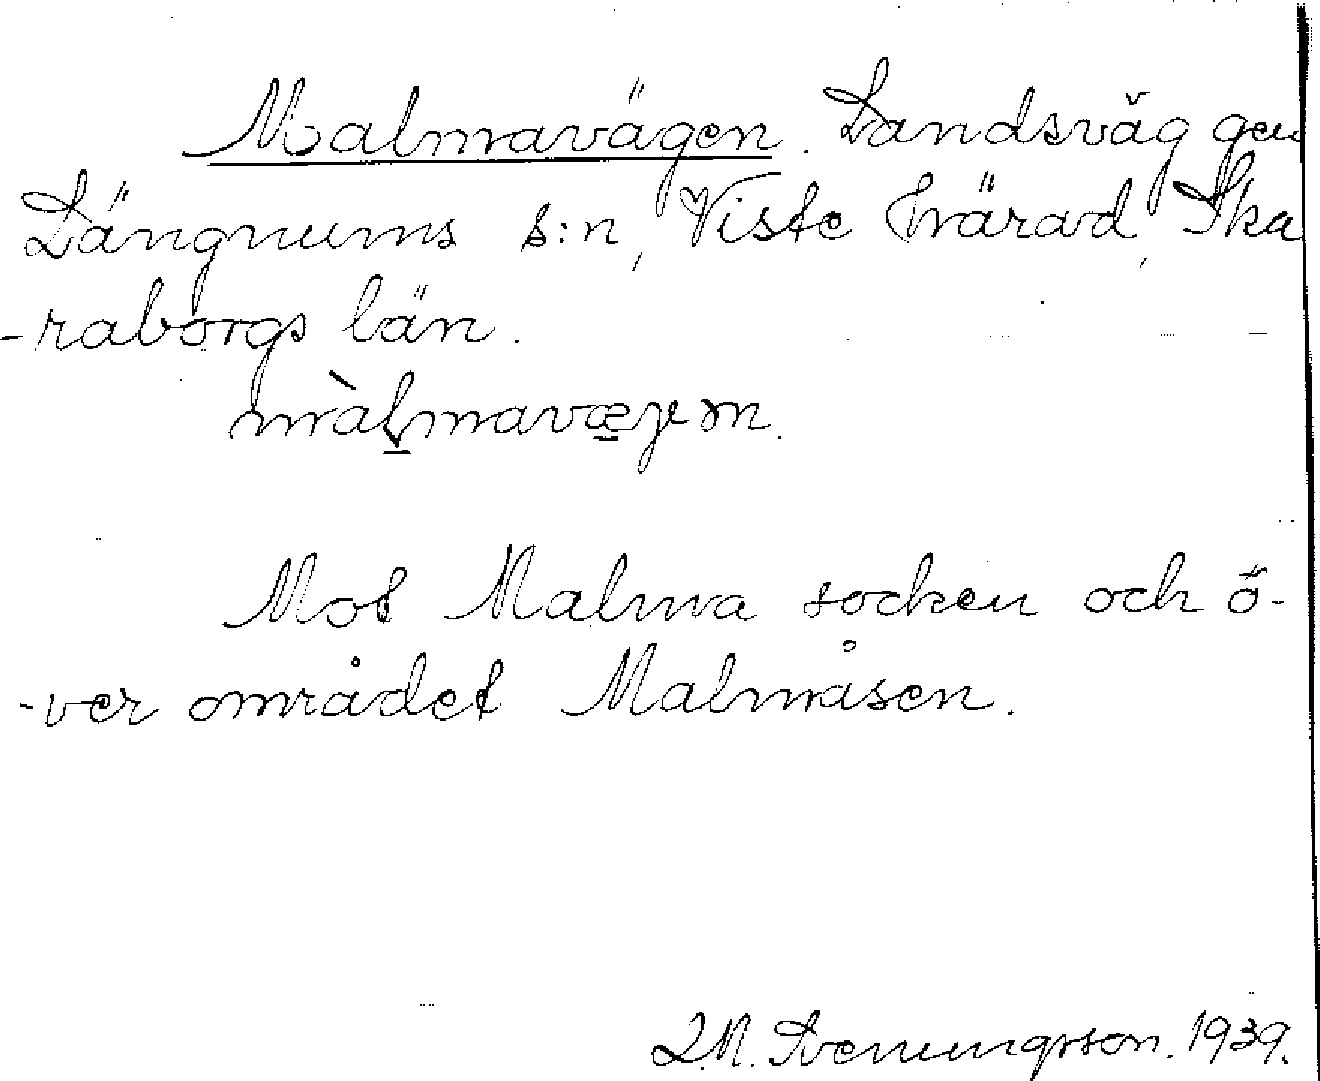 Malmavägen. Landsväg gen
Längnums s:n, Viste härad, Ska
-raborgs län.
màlmavægen.
Mot Malma socken och ö-
-ver området Malmåsen.
L.N. Svenungsson. 1939.